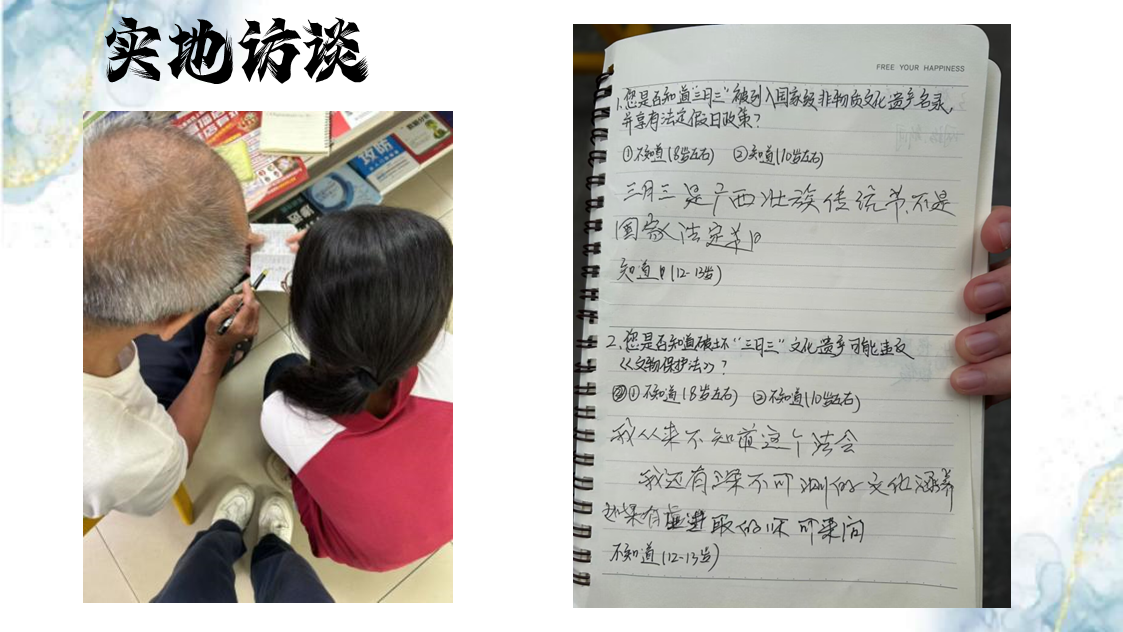 实地访谈
攻防
FREE YOUR HAPPINESS
1.您是否知道"三月三"被列入国家级非物质文化遗产名录,
并享有法定假日政策?
①不知道(8岁左右) ②知道(10岁左右)
三月三是广西壮族传统节,不是
国家法定节日
知道(12-13岁)
2.您是否知道破坏"三月三"文化遗产可能违反
《文物保护法》?
①不知道(8岁左右) ②不知道(10岁左右)
我从来不知道这个法会
我还有深不可测的文化涵养
如果有 取的你可来问
不知道(12-13岁)